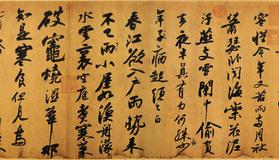 容惜今年又苦雨兩月秋
蕭瑟卧聞海棠花泥
汙燕支雪闇中偷負
去夜半真有力何殊少
年病起頭已白
春江欲入戶雨勢來
不已雨小屋如漁舟濛濛
水雲裏空庖煮寒菜
破竈燒濕葦那
知是寒食但見烏